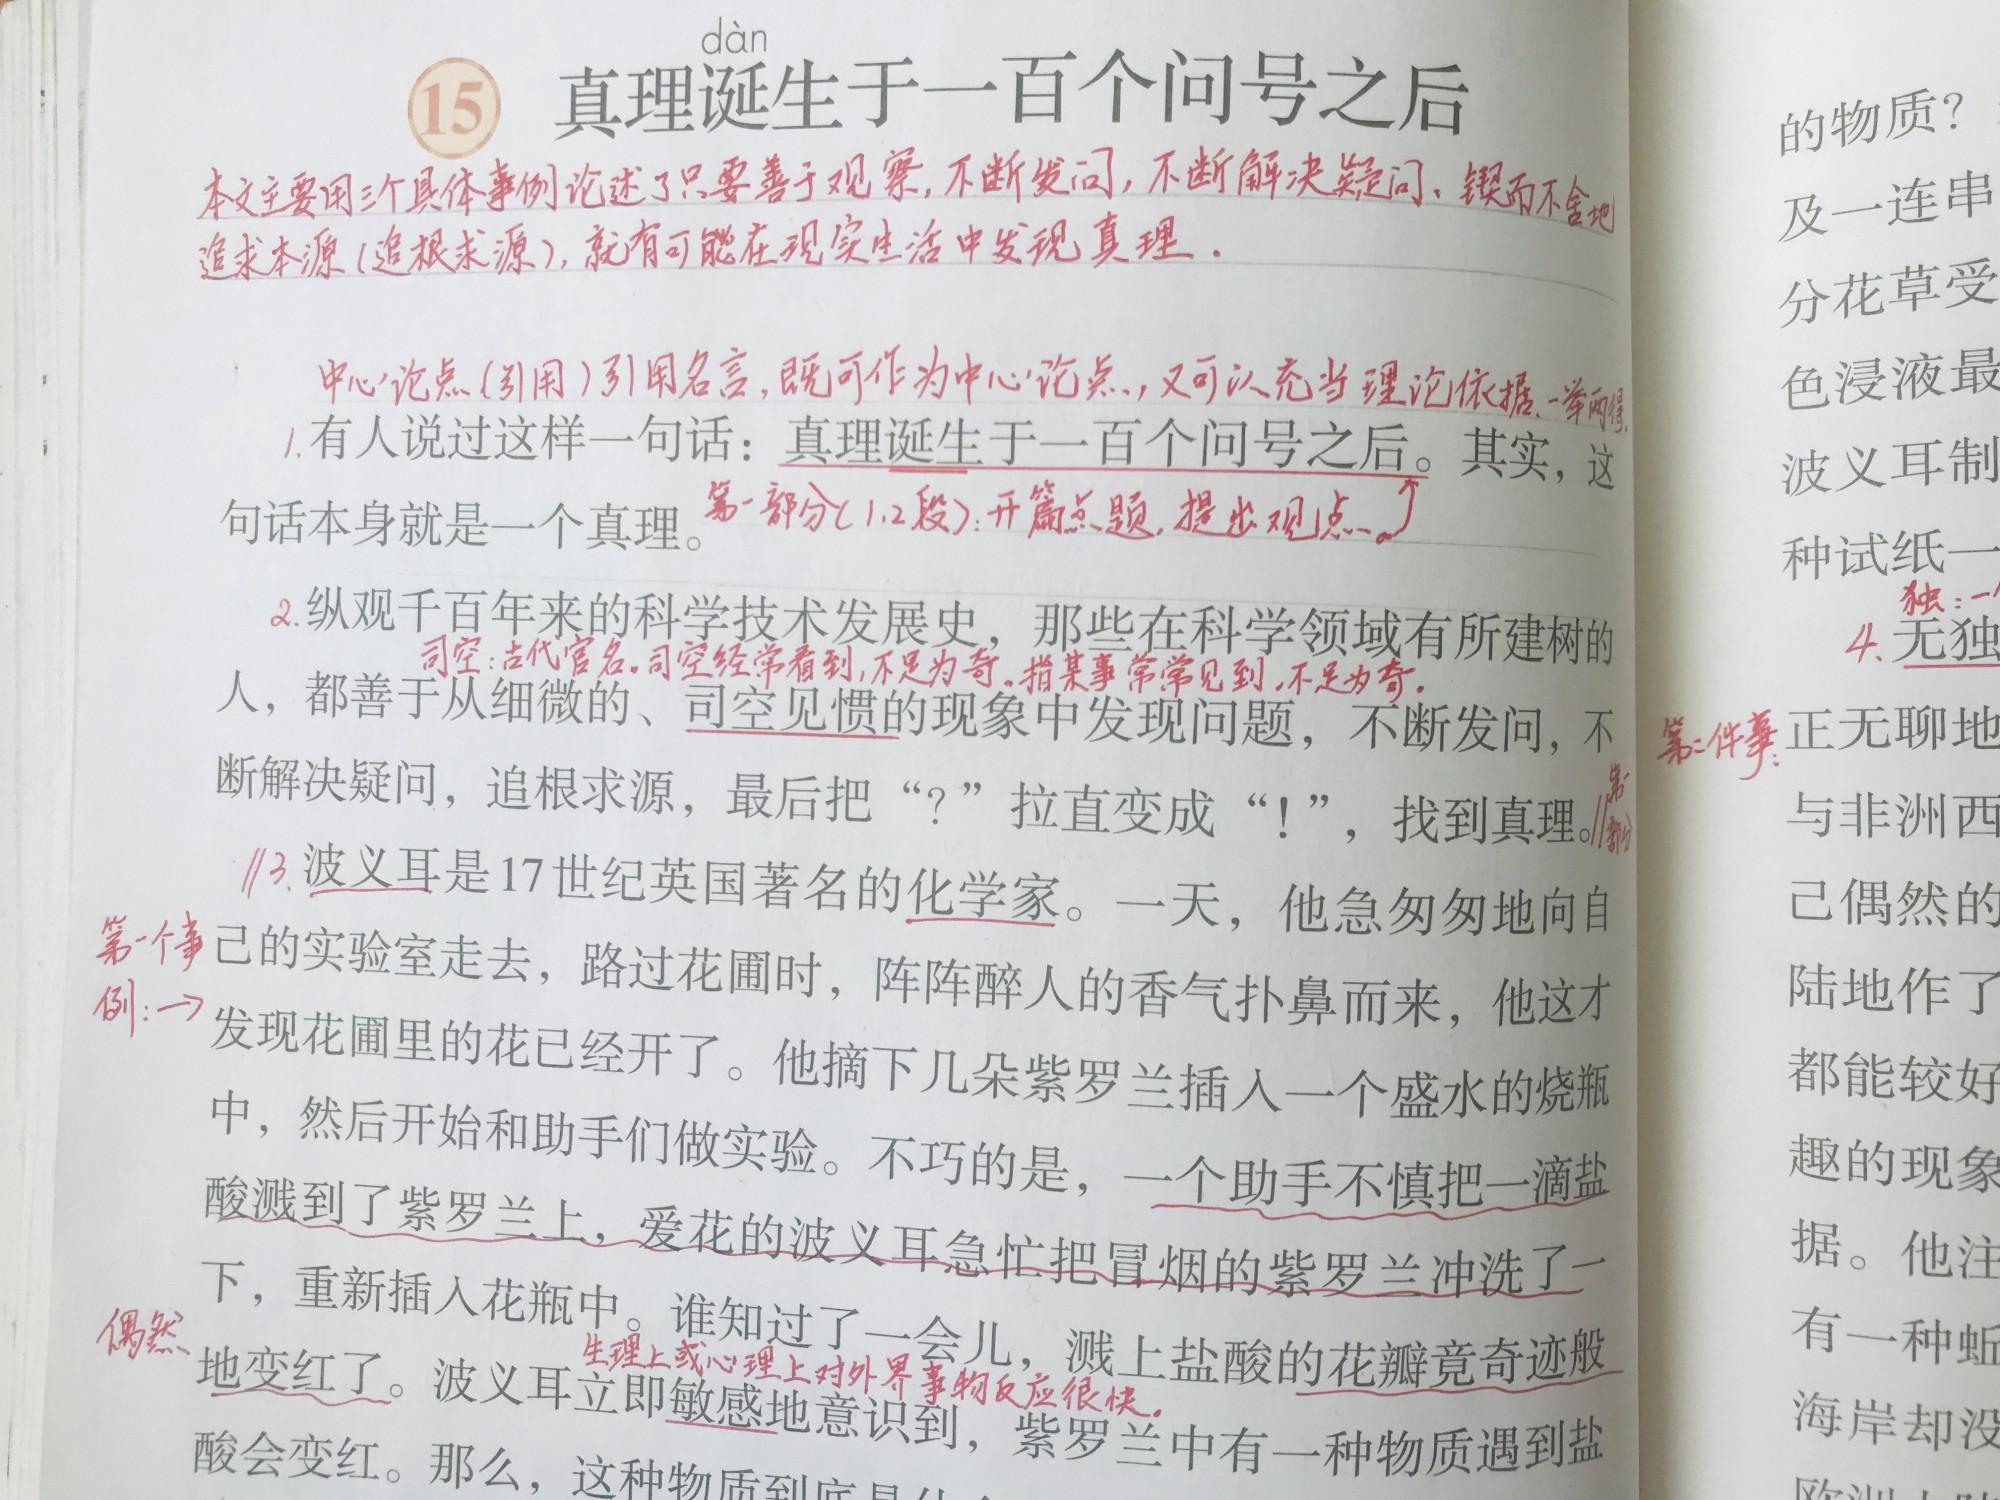 dàn
15 真理诞生于一百个问号之后
本文主要用三个具体事例论述了只要善于观察，不断发问，不断解决疑问、锲而不舍地
追求本源（追根求源），就有可能在现实生活中发现真理．
中心论点（引用）引用名言，既可作为中心论点，又可以充当理论依据、一举两得．
1.有人说过这样一句话：真理诞生于一百个问号之后。其实，这
句话本身就是一个真理。
第一部分（1.2段）：开篇点题，提出观点。
2.纵观千百年来的科学技术发展史，那些在科学领域有所建树的
司空：古代官名。司空经常看到，不足为奇。指某事常常见到，不足为奇．
人，都善于从细微的、司空见惯的现象中发现问题，不断发问，不
断解决疑问，追根求源，最后把“？”拉直变成“！”，找到真理。//
第一
部分
//3.波义耳是17世纪英国著名的化学家。一天，他急匆匆地向自
第一个事
例：→
己的实验室走去，路过花圃时，阵阵醉人的香气扑鼻而来，他这才
发现花圃里的花已经开了。他摘下几朵紫罗兰插入一个盛水的烧瓶
中，然后开始和助手们做实验。不巧的是，一个助手不慎把一滴盐
酸溅到了紫罗兰上，爱花的波义耳急忙把冒烟的紫罗兰冲洗了一
下，重新插入花瓶中。谁知过了一会儿，溅上盐酸的花瓣竟奇迹般
偶然、
生理上或心理上对外界事物反应很快．
地变红了。波义耳立即敏感地意识到，紫罗兰中有一种物质遇到盐
酸会变红。那么，这种物质到底是什
的物质？
及一连串
分花草受
色浸液最
波义耳制
种试纸一
独：一
4.无独
第二件事：
正无聊地
与非洲西
己偶然的
陆地作了
都能较好
趣的现象
据。他注
有一种蚯
海岸却没